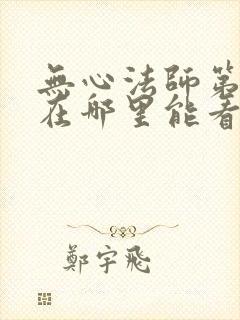 無心法師第
在哪里能看
鄭宇飛